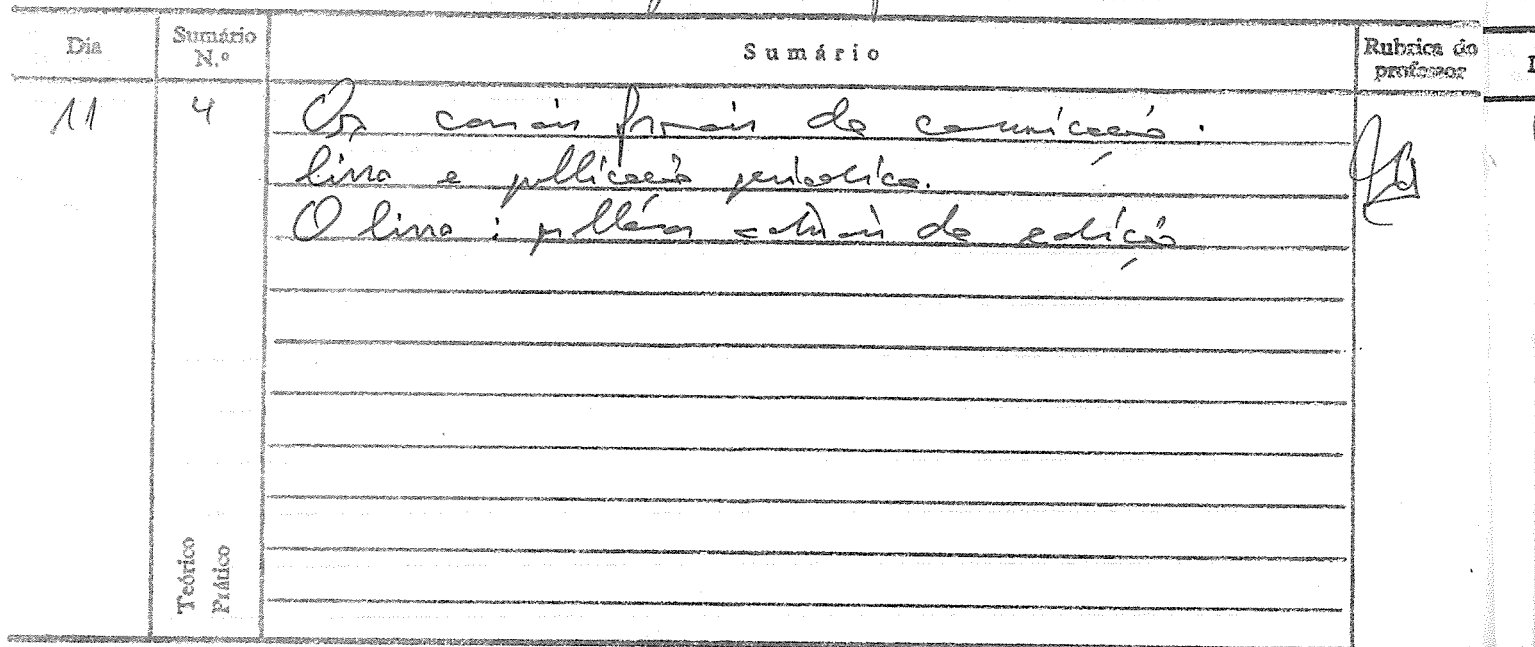 Dia
Sumário N.º
Sumário
Rubrica do professor
11
4
Os canais formais de comunicação.
livro e publicação periódica.
O livro: problemas actuais de edição
Teórico
Prático